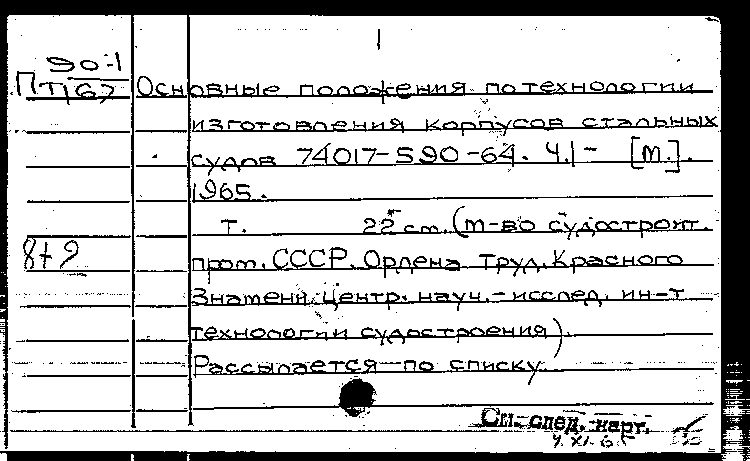 90-1
ПТ167 Основные положения по технологии
изготовления корпусов стальных
судов 74017-590-64. Ч.1- [М.].
1965.
т. 22 см. (М-во судостроит.
пром. СССР. Ордена Труд. Красного
Знамени центр. науч.-исслед. ин-т
технологии судостроения).
Рассылается по списку.
См. след. карт.
4.XI.65